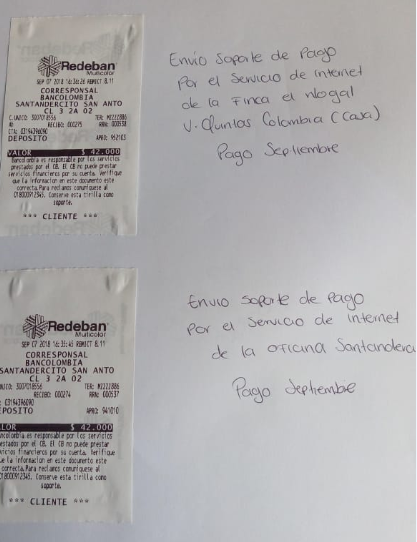 Redeban
Multicolor
SEP 07 2018 16:36:26 RBMCT 8.11
CORRESPONSAL
BANCOLOMBIA
SANTANDERCITO SAN ANTO
CL 3 2A 02
C.UNICO: 3007018556 TER: M2221886
RECIBO: 000275 RRN: 000538
CTA: 03194396090
DEPOSITO APRO: 952103
VALOR $ 42.000
Bancolombia es responsable por los servicios
prestados por el CB. El CB no puede prestar
servicios financieros por su cuenta. Verifique
que la informacion en este documento este
correcta. Para reclamos comuniquese al
018000912345. Conserve esta tirilla como
soporte.
*** CLIENTE ***
Envio Soporte de Pago
Por el Servicio de Internet
de la Finca el Nogal
V. Quintas Colombia (Casa)
Pago Septiembre
Redeban
Multicolor
SEP 07 2018 16:35:45 RBMCT 8.11
CORRESPONSAL
BANCOLOMBIA
SANTANDERCITO SAN ANTO
CL 3 2A 02
UNICO: 3007018556 TER: M2221886
RECIBO: 000274 RRN: 000537
: 03194396090
POSITO APRO: 941010
LOR $ 42.000
ncolombia es responsable por los servicios
estados por el CB. El CB no puede prestar
rvicios financieros por su cuenta. Verifique
ue la informacion en este documento este
correcta. Para reclamos comuniquese al
018000912345. Conserve esta tirilla como
soporte.
*** CLIENTE ***
Envio Soporte de Pago
Por el Servicio de Internet
de la oficina Santander
Pago Septiembre